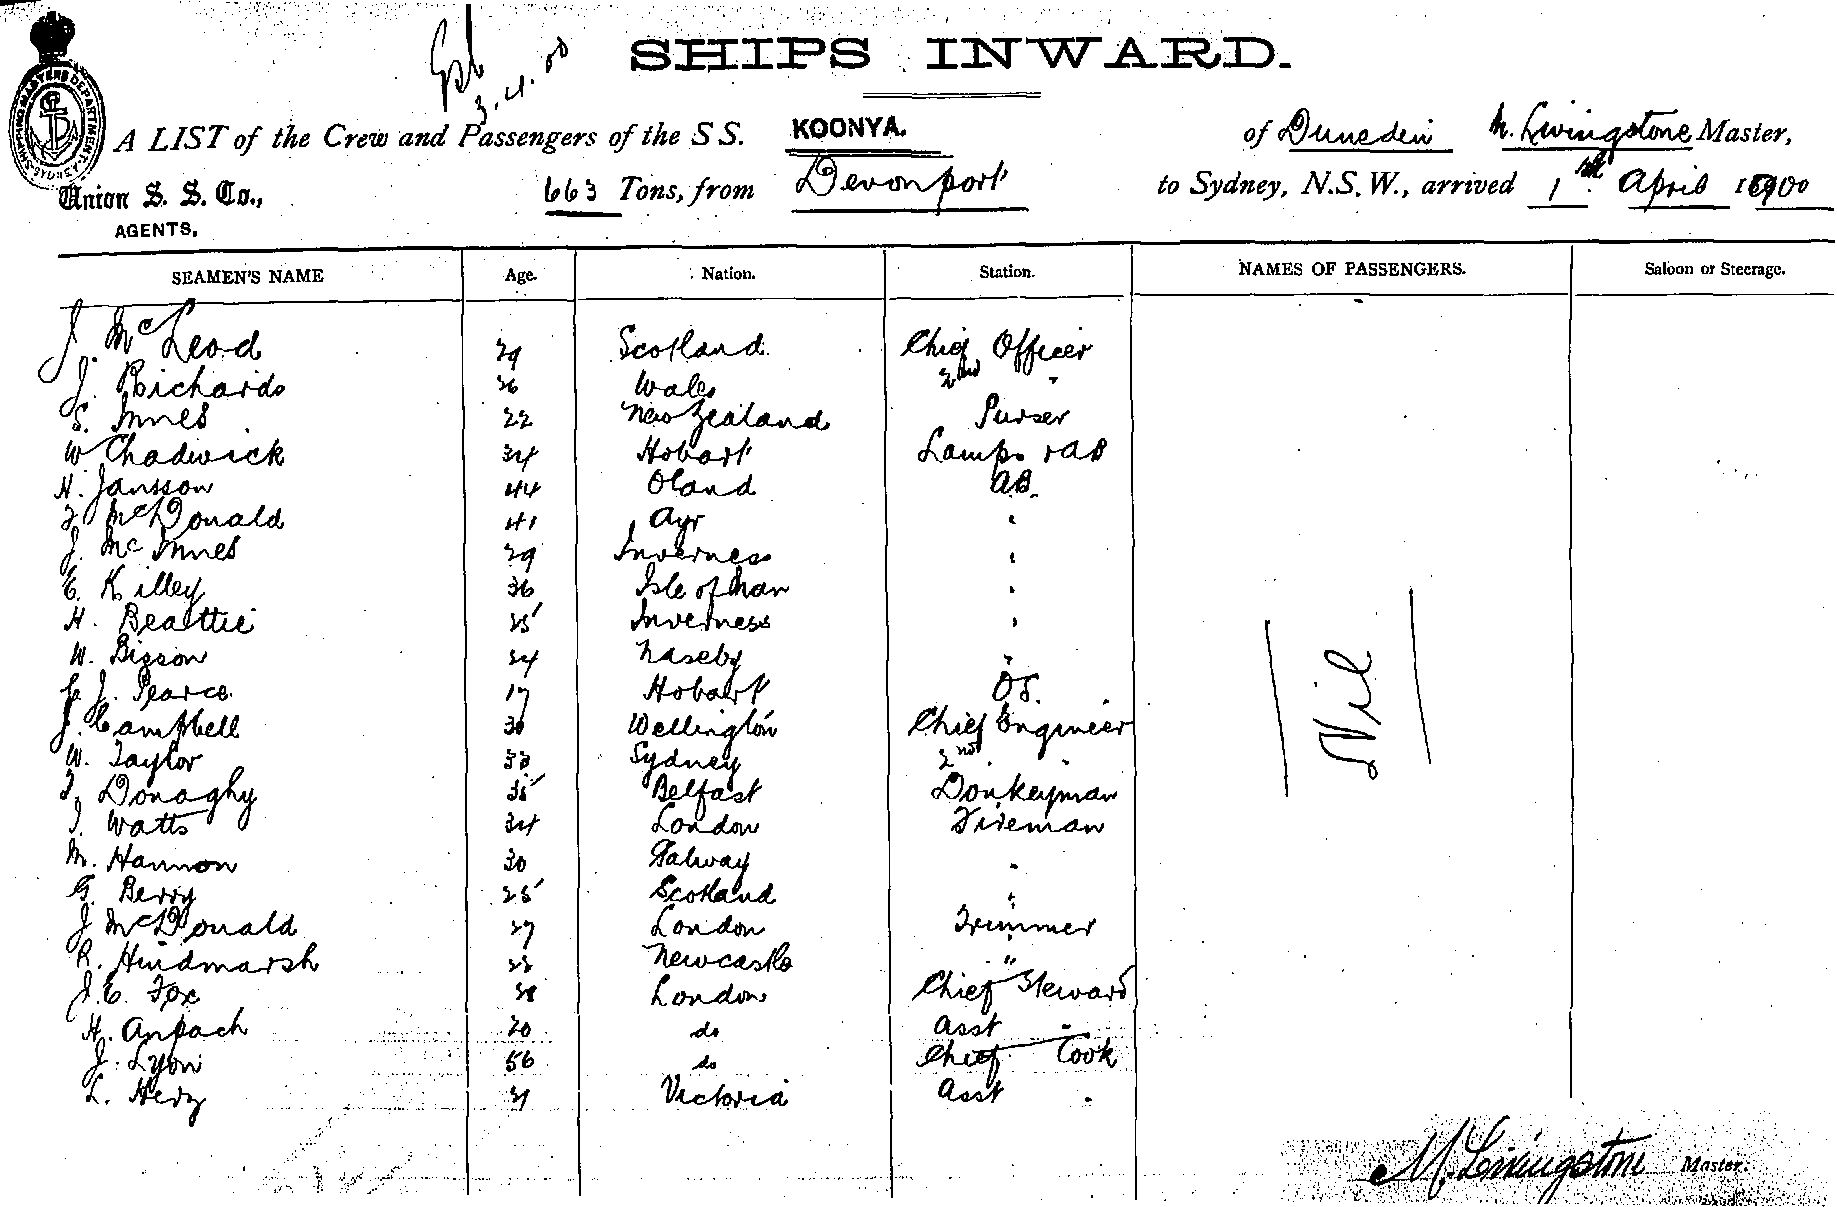 3.4.00
SHIPS INWARD.
A LIST of the Crew and Passengers of the S S. KOONYA. of Dunedin M. Livingstone Master,
Union S. S. Co., 663 Tons, from Devonport to Sydney, N.S.W., arrived 1st April 1900
AGENTS.
SEAMEN'S NAME Age. Nation. Station. NAMES OF PASSENGERS. Saloon or Steerage.
J. McLeod 29 Scotland Chief Officer
J. Richards 26 Wales 2nd "
S. Innes 22 New Zealand Purser
W Chadwick 34 Hobart Lamps & AB
N. Jansson 44 Oland AB.
McDonald 41 Ayr "
J. McInnes 29 Inverness "
E. Killey 36 Isle of Man "
H. Beattie 25 Inverness "
W. Bisson 24 Naseby "
J. Pearce 17 Hobart OS.
J. Campbell 30 Wellington Chief Engineer
W. Taylor 33 Sydney 2nd "
Donaghy 35 Belfast Donkeyman
Watts 34 London Fireman
M. Hannon 30 Galway "
G. Berry 25 Scotland "
J McDonald 27 London Trimmer
R. Hindmarsh Newcastle "
J. C. Fox 38 London Chief Steward
H. Anpach 20 do Asst "
J. Lyon 56 do Chief Cook
L. Herz 21 Victoria Asst "
Nil
M. Livingstone Master.